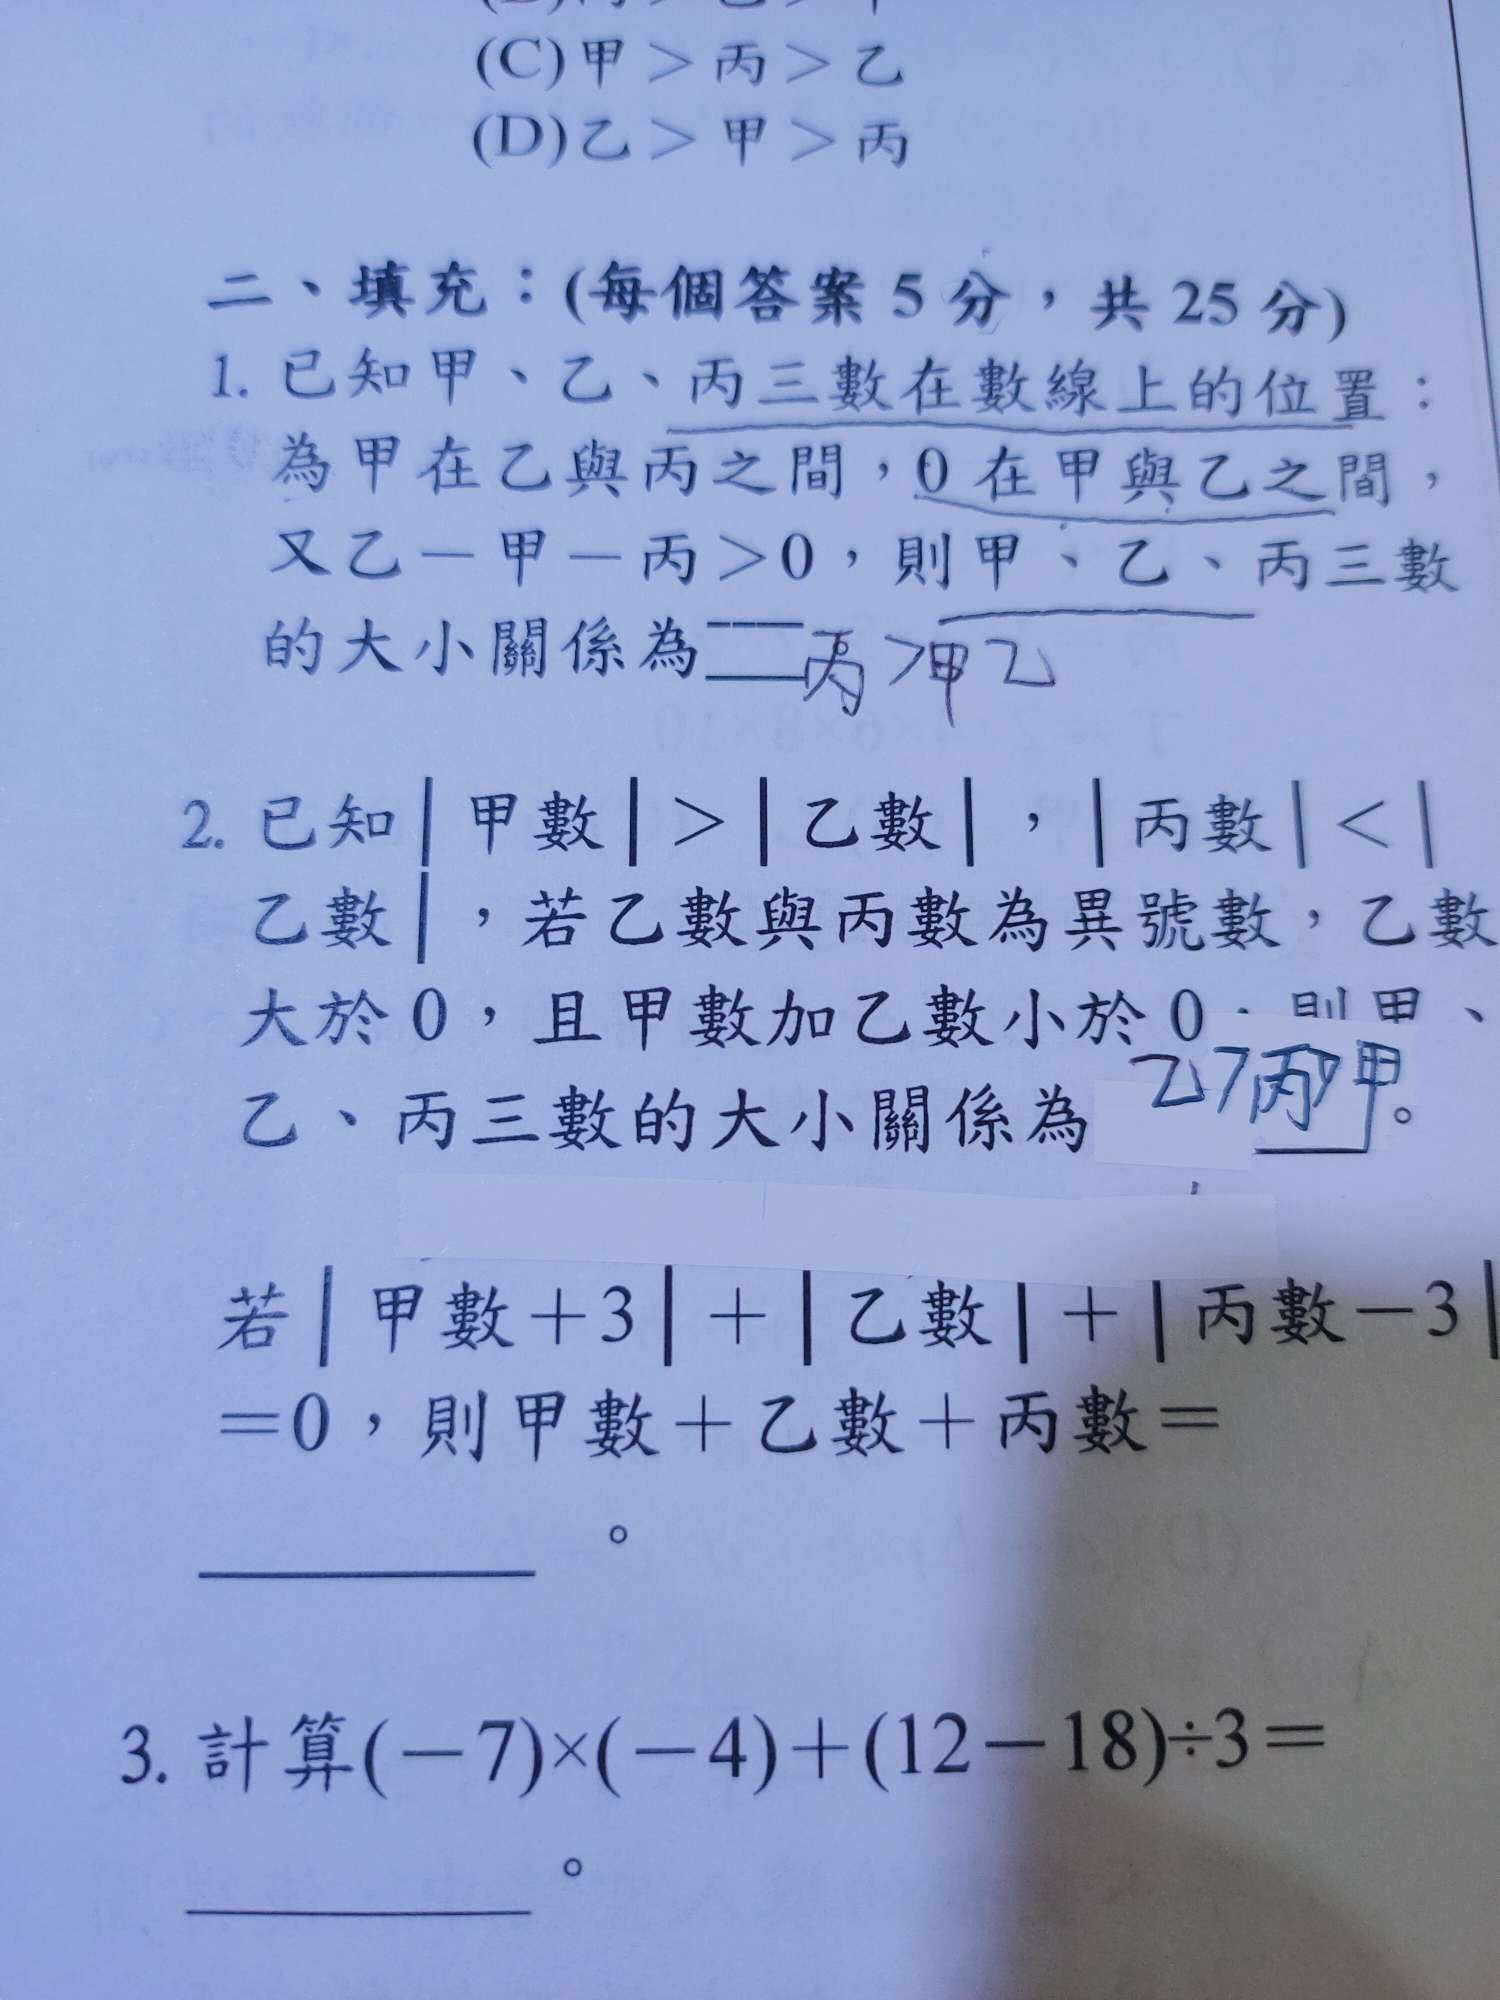 (C)甲＞丙＞乙
(D)乙＞甲＞丙
二、填充：(每個答案5分，共25分)
1. 已知甲、乙、丙三數在數線上的位置：
為甲在乙與丙之間，0在甲與乙之間，
又乙－甲－丙＞0，則甲、乙、丙三數
的大小關係為 丙＞甲乙
2. 已知|甲數|＞|乙數|，|丙數|＜|
乙數|，若乙數與丙數為異號數，乙數
大於0，且甲數加乙數小於0，則甲、
乙、丙三數的大小關係為 乙>丙>甲。
若|甲數＋3|＋|乙數|＋|丙數－3|
＝0，則甲數＋乙數＋丙數＝
。
3. 計算(－7)×(－4)＋(12－18)÷3＝
。